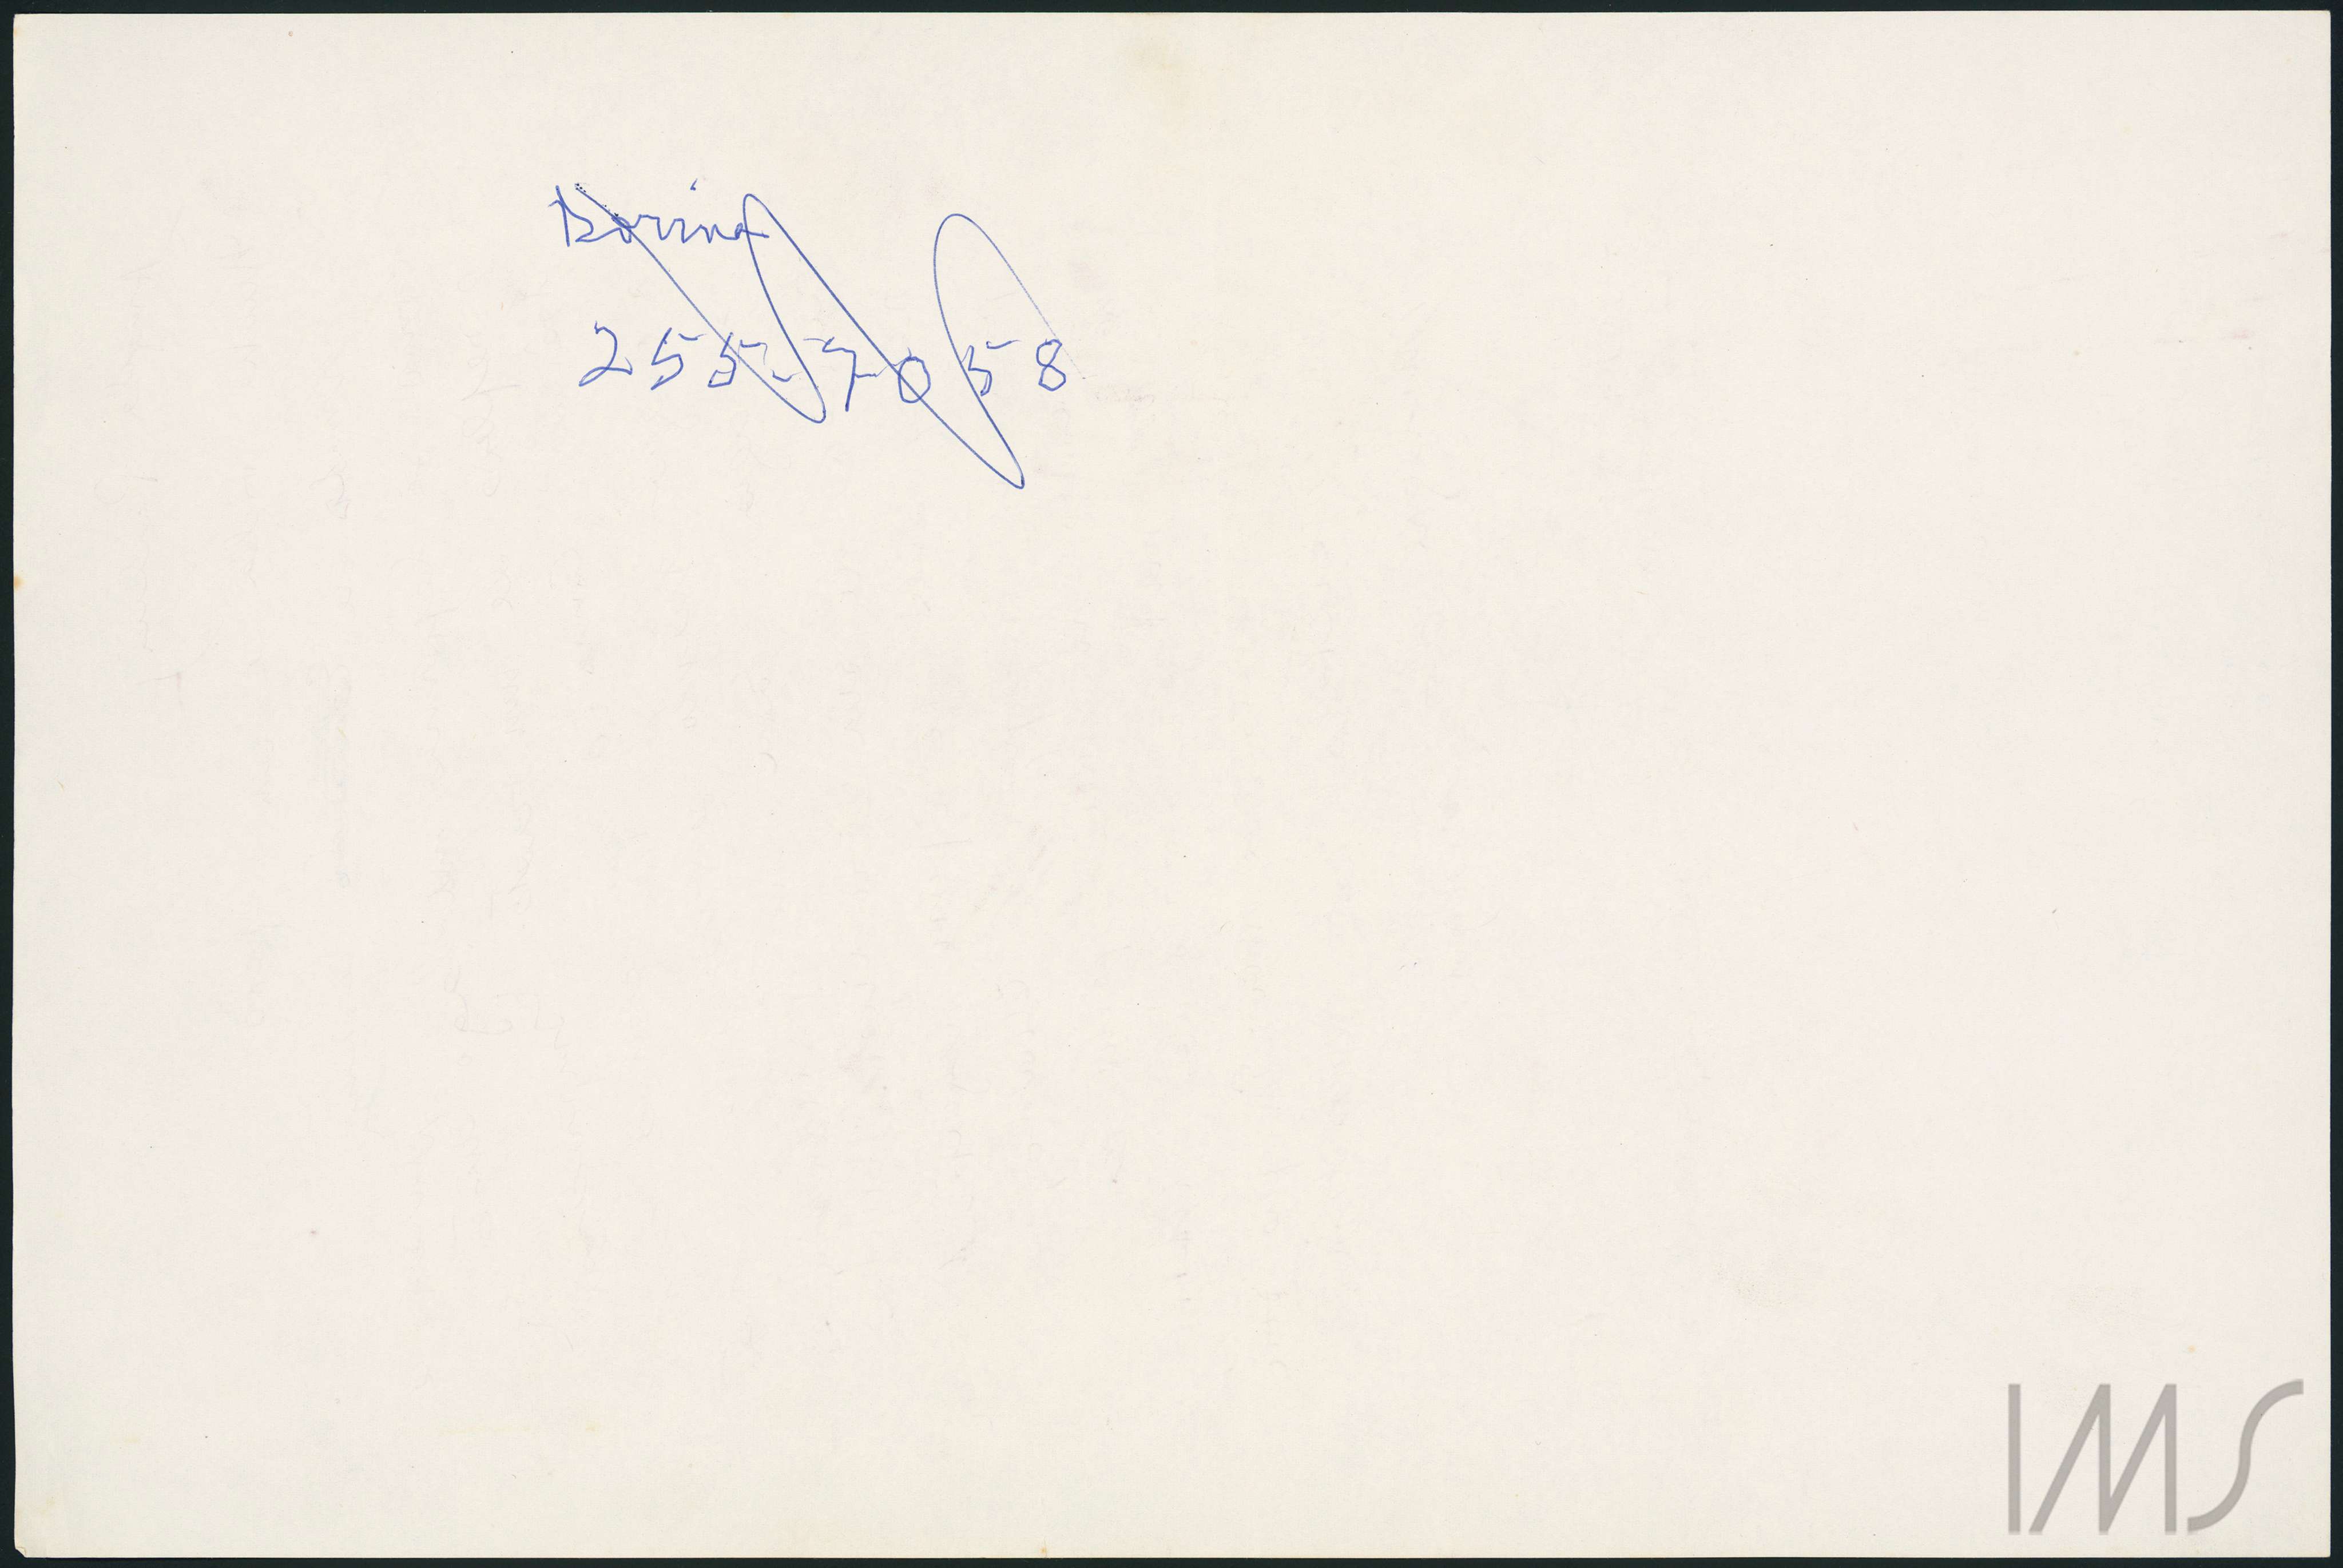 Dorina
255-7058
IMS